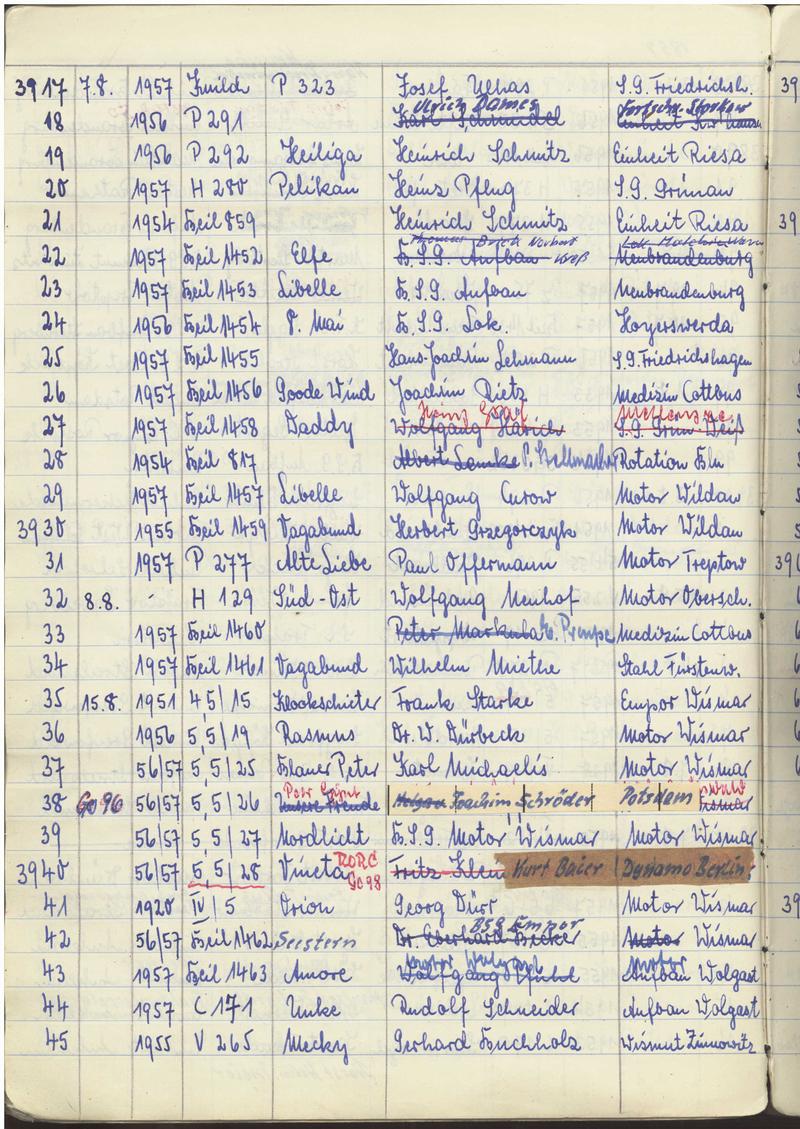 3917 7.8. 1957 P 323 Josef S.G. Friedrichsh.
Ulrich Dames
18 1956 P 291
19 1956 P 292 Heiliga Heinrich Schmitz Einheit Riesa
20 1957 H 280 Pelikan Heinz Pflug S.G. Grünau
21 1954 Beil 859 Heinrich Schmitz Einheit Riesa 39
22 1957 Beil 1452 Elfe B.S.G. Aufbau Neubrandenburg
23 1957 Beil 1453 Libelle B.S.G. Aufbau Neubrandenburg
24 1956 Beil 1454 8. Mai B.S.G. Lok. Hoyerswerda
25 1957 Beil 1455 Hans-Joachim Lehmann S.G. Friedrichshagen
26 1957 Beil 1456 Goode Wind Joachim Rietz Medizin Cottbus
Heinz
27 1957 Beil 1458 Daddy Wolfgang S.G. Grün Weiß
28 1954 Beil 817 Albert Lemke Rotation Bln
29 1957 Beil 1457 Libelle Wolfgang Curow Motor Wildau
3930 1955 Beil 1459 Vagabund Herbert Grzegorczyk Motor Wildau
31 1957 P 277 Alte Liebe Paul Offermann Motor Treptow 39
32 8.8. - H 129 Süd-Ost Wolfgang Neuhof Motor Obersch.
33 1957 Beil 1460 Peter Markula Medizin Cottbus
34 1957 Beil 1461 Vagabund Wilhelm Miethe Stahl Fürstenw.
35 15.8. 1951 45/15 Klookschieter Frank Starke Empor Wismar
36 1956 5,5/19 Rasmus Dr. W. Dürbeck Motor Wismar
37 56/57 5,5/25 Blauer Peter Karl Michaelis Motor Wismar
Peer Gynt
38 Go 96 56/57 5,5/26 Unsere Freude Joachim Schröder Potsdam
39 56/57 5,5/27 Nordlicht B.S.G. Motor Wismar Motor Wismar
RORC
3940 56/57 5,5/28 Vineta Fritz Klein Kurt Baier Dynamo Berlin
Go 98
41 1920 IV/5 Orion Georg Dürr Motor Wismar 39
BSG Empor
42 56/57 Beil 1462 Seestern Dr. Eberhard Becker Motor Wismar
Motor Wolgast Motor
43 1957 Beil 1463 Amore Wolfgang Aufbau Wolgast
44 1957 C 171 Unke Rudolf Schneider Aufbau Wolgast
45 1955 V 265 Mecky Gerhard Buchholz Wismut Zinnowitz